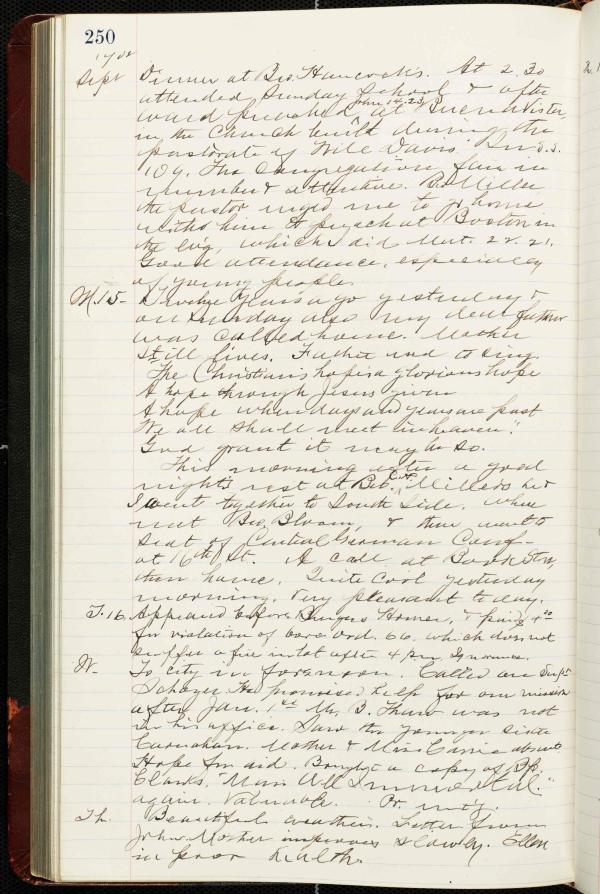 250
1902
Sept Dinner at Bro. Hancock's. At 2.30
attended Sunday School & after
ward preached John 14-23 at Buena Vista,
in the Church built during the
pastorate of Will Davis. In S.S.
109. The Congregation fair in
number & attentive. Bro Miller
the pastor urged me to go home
with him & preach at Boston in
the ev'g, which I did Mat. 22. 21.
Good attendance, especially
of young people.
M. 15- Twelve years ago yesterday &
on Sunday also my dear father
was called home. Mother
still lives. Father used to sing
The Christian's hope is a glorious hope
A hope through Jesus given
A hope when days and years are past
We all shall meet in heaven".
God grant it may be so.
This morning after a good
night's rest at Bro. Miller's he &
I went together to South Side, where
met Bro. Bloom, & then went to
seat of Central German Conf-
at 16th St. A call at Book Store,
then home. Quite cool yesterday
morning. Very pleasant today.
T. 16. Appeared before Burgess Homer, &
for violation of boro ord. 66. which does not
suffer a fire in lot after 4 pm. Ignorance.
W. To city in forenoon. Called on Supt
He promised help for our mission
after Jan. 1st Mr. B. Thaw was not
in his office. Saw the younger sister
Carnahan. Mother & Miss absent
Hope for aid. Bought a copy of Bp.
Clark's, "Man All Immortal."
again. Valuable. Pr. mtg.
Th. Beautiful weather. Letter from
John. Mother improves slowly. Ellen
in poor health.